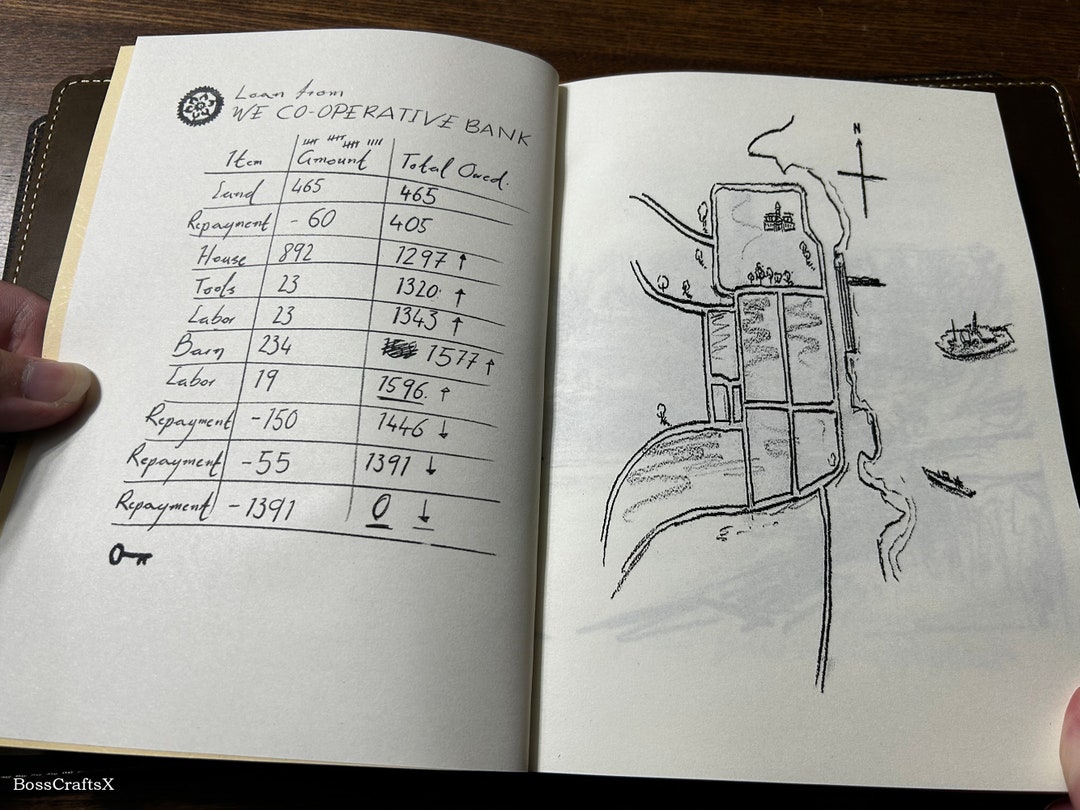 Loan from
WE CO-OPERATIVE BANK
Item Amount Total Owed.
Land 465 465
Repayment - 60 405
House 892 1297 ↑
Tools 23 1320. ↑
Labor 23 1343 ↑
Barn 234 1577 ↑
Labor 19 1596. ↑
Repayment -150 1446 ↓
Repayment -55 1391 ↓
Repayment -1391 0 ↓
N
BossCraftsX